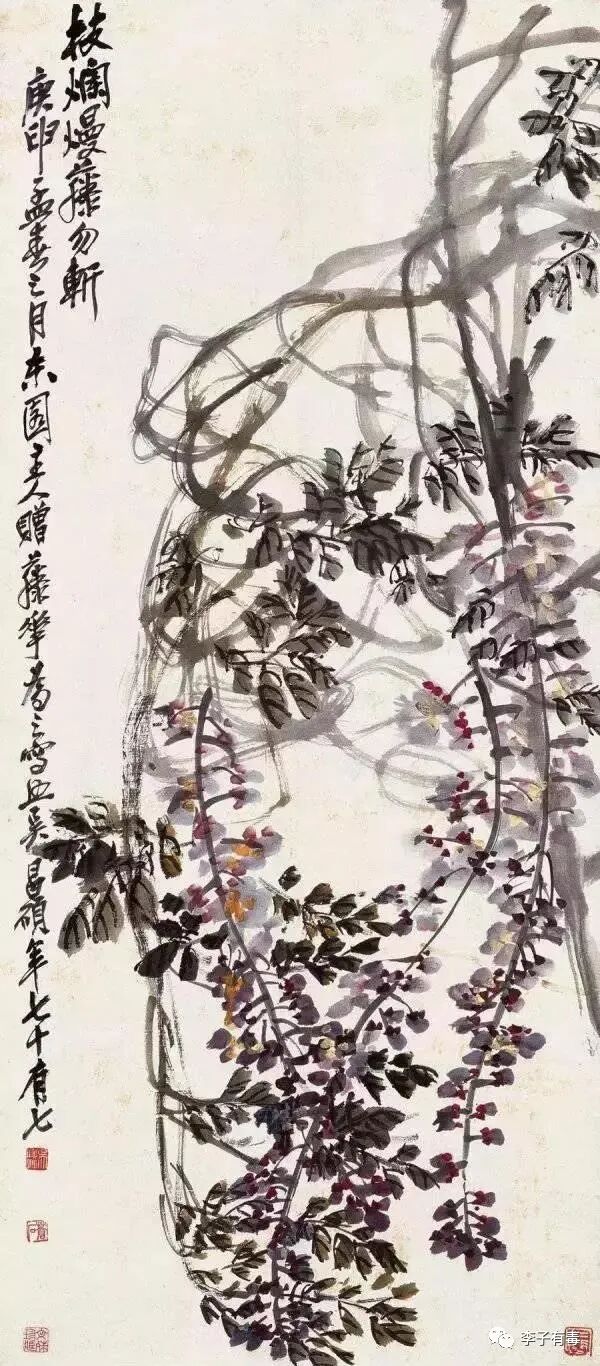 枝爛熳藤勿斬
庚申孟春之月園主人贈藤華為之寫吳昌碩年七十有七
李子有毒